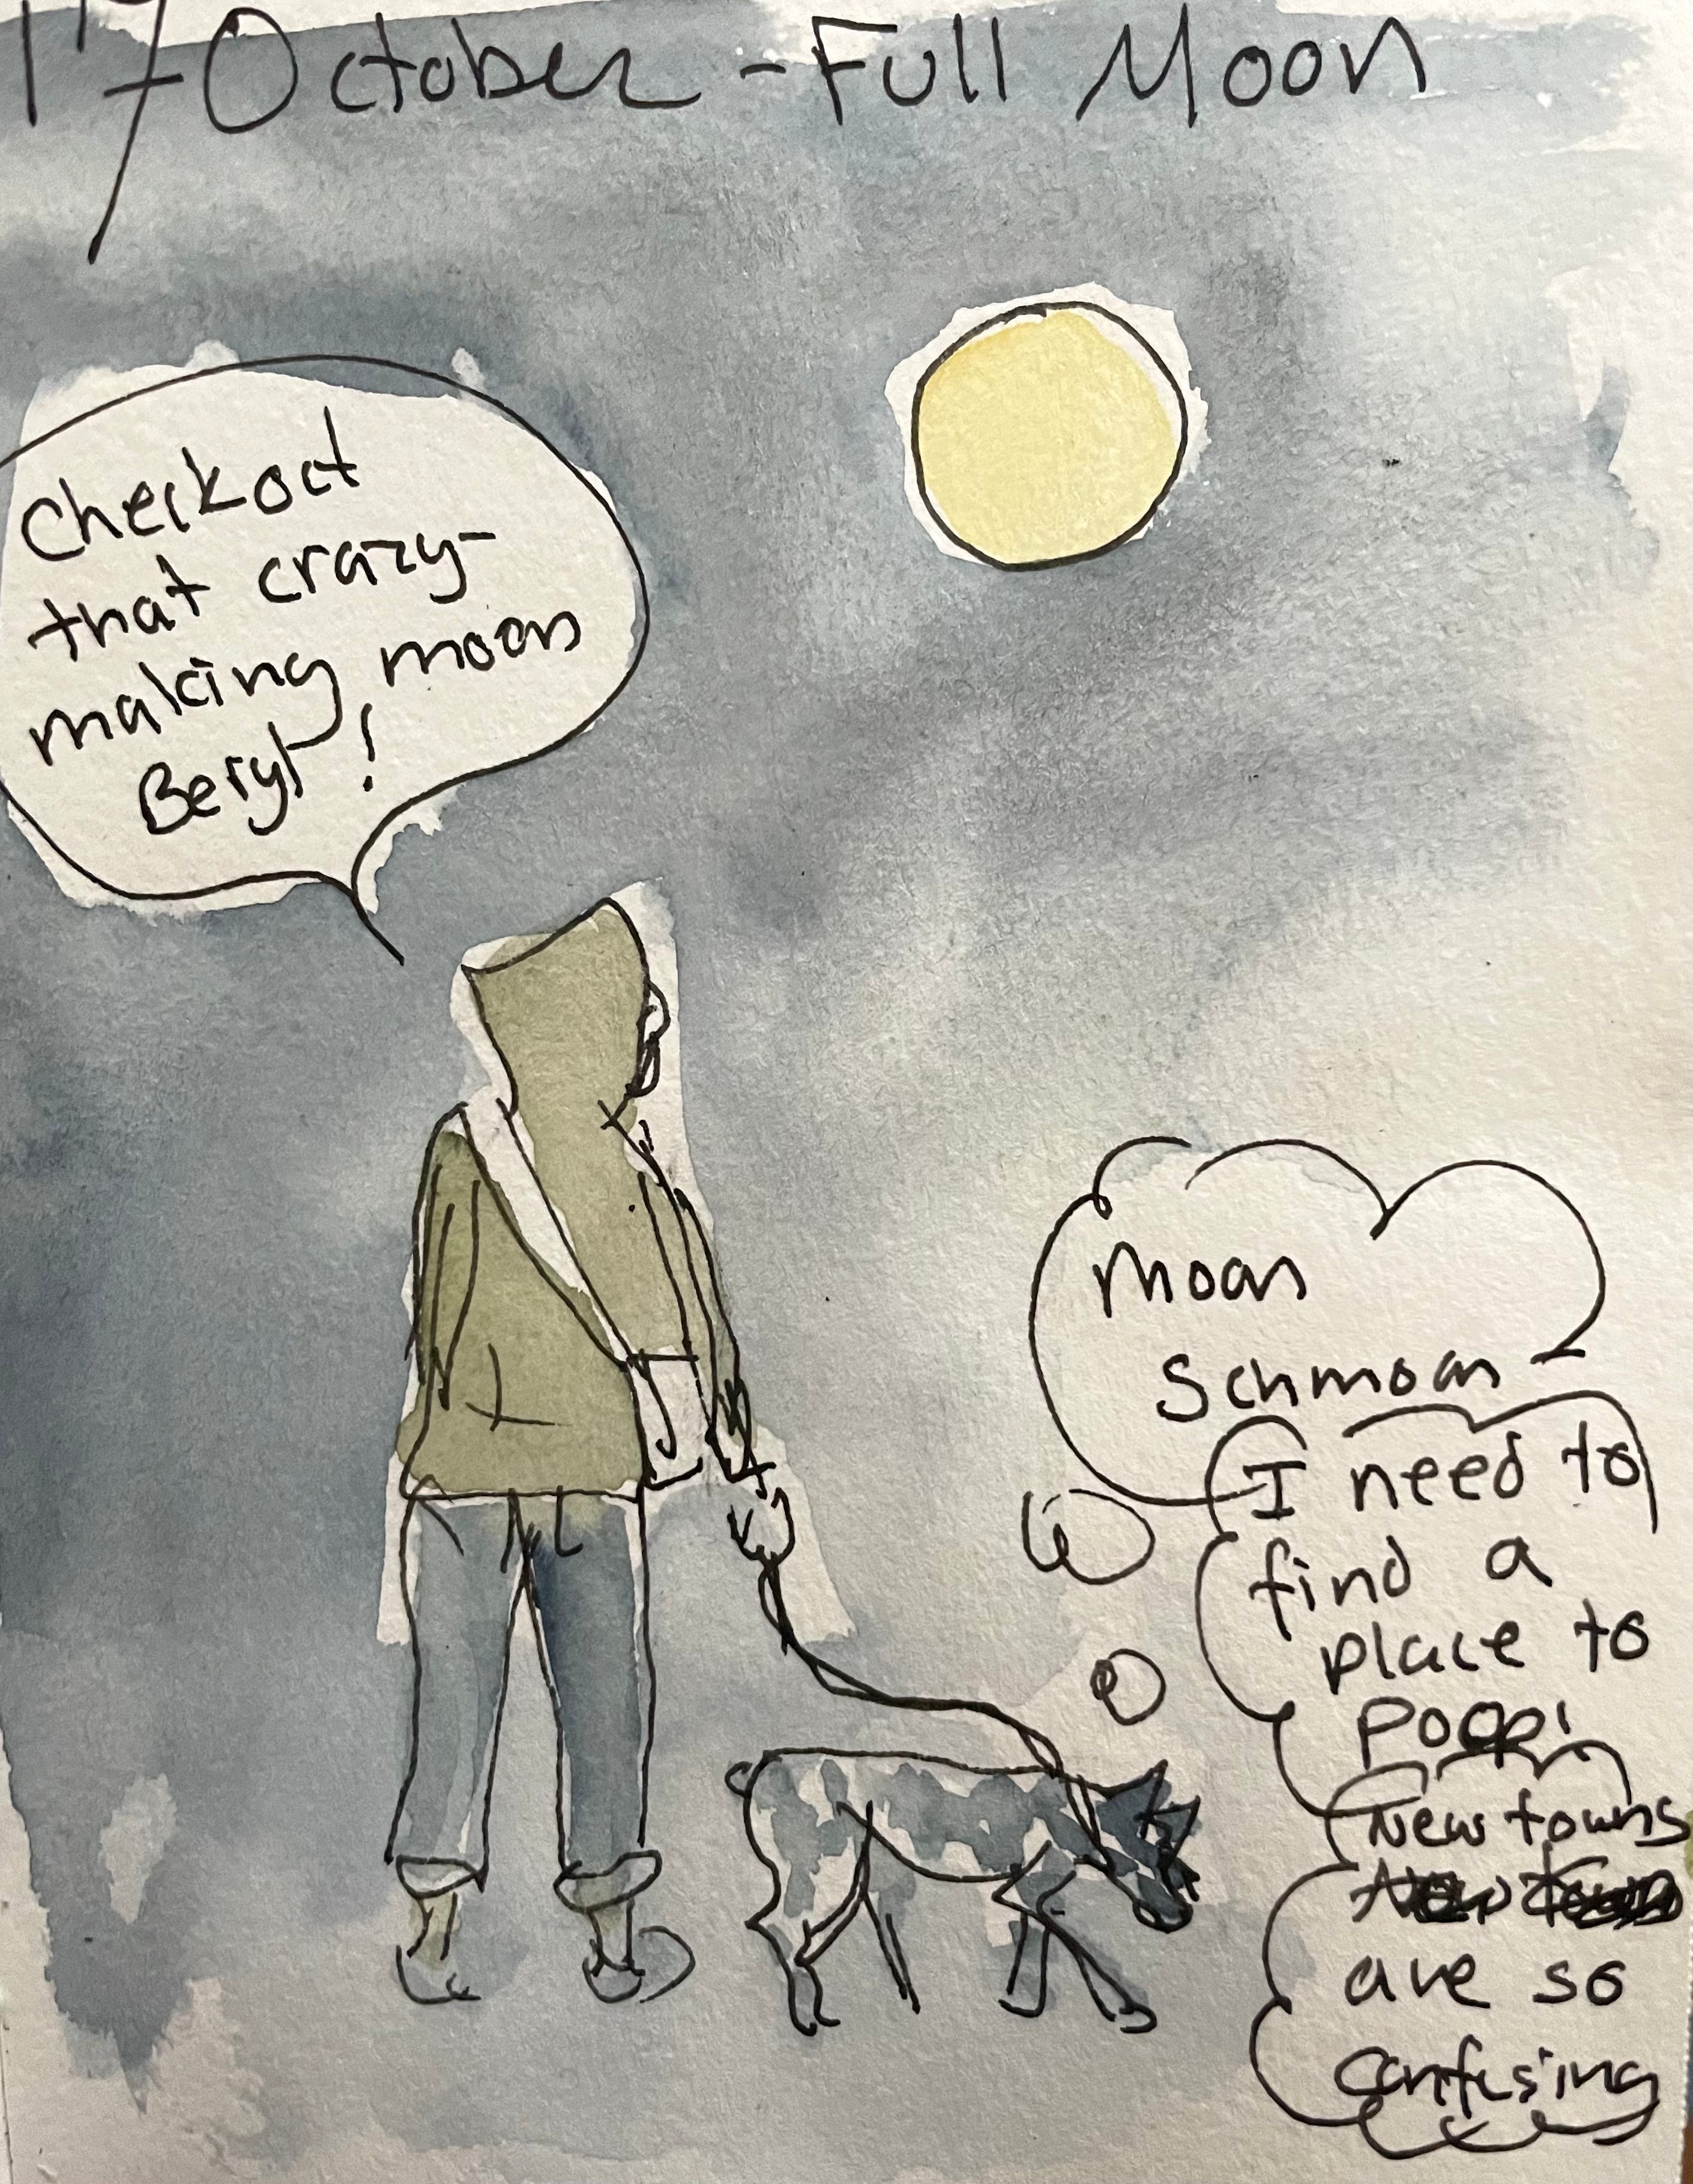 17 October - Full Moon
Check out
that crazy-
making moon
Beryl!
Moon
Schmoon
I need to
find a
place to
poop!
New towns
are so
confusing